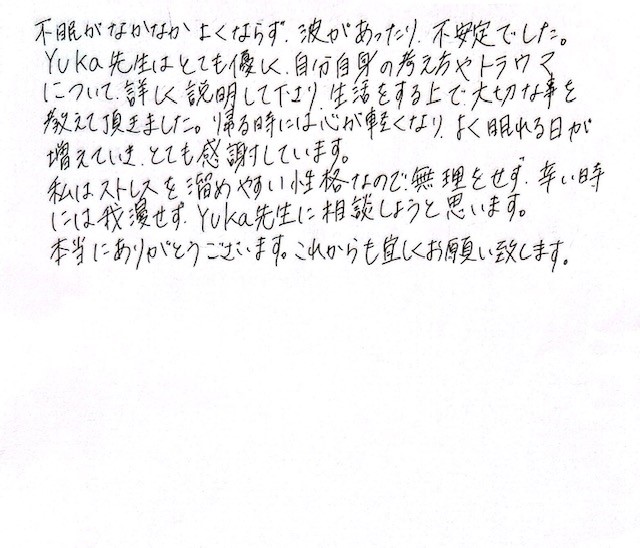 不眠がなかなかよくならず、波があったり、不安定でした。
Yuka先生はとても優しく、自分自身の考え方やトラウマ
について、詳しく説明して下さり、生活をする上で大切な事を
教えて頂きました。帰る時には心が軽くなり、よく眠れる日が
増えていき、とても感謝しています。
私はストレスを溜めやすい性格なので、無理をせず、辛い時
には我慢せず、Yuka先生に相談しようと思います。
本当にありがとうございます。これからも宜しくお願い致します。